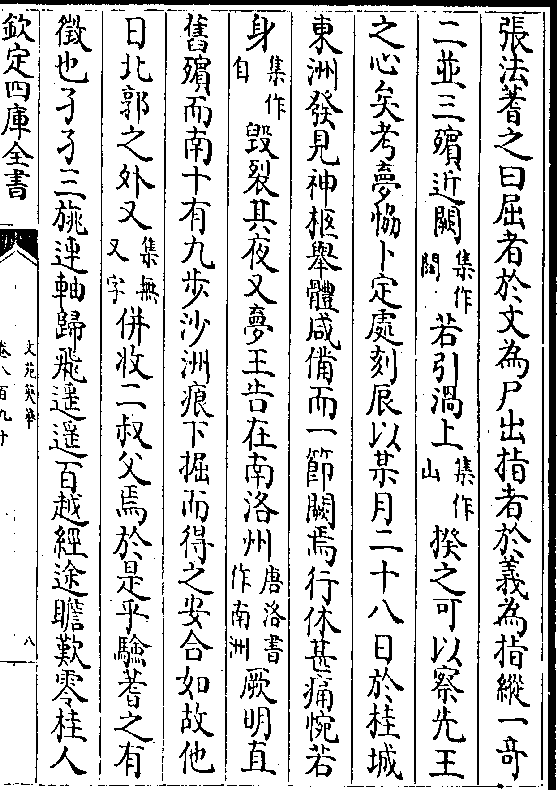 張法蓍之曰屈者於文為尸出指者於義為指縱一竒
二並三殯近闕集作閣若引渦上集作山揆之可以察先王
之心矣考夢恊卜定處刻辰以某月二十八日於桂城
東洲發見神柩舉體咸備而一節闕焉行休甚痛惋若
身集作自毀裂其夜又夢王告在南洛州唐洛書作南洲厥明直
舊殯而南十有九步沙洲痕下掘而得之安合如故他
日北郭之外又集無又字併收二叔父焉於是乎驗蓍之有
徵也孑孑三旐連軸歸飛遥遥百越經途瞻歎零桂人
欽定四庫全書
文苑英華
卷八百九十
八